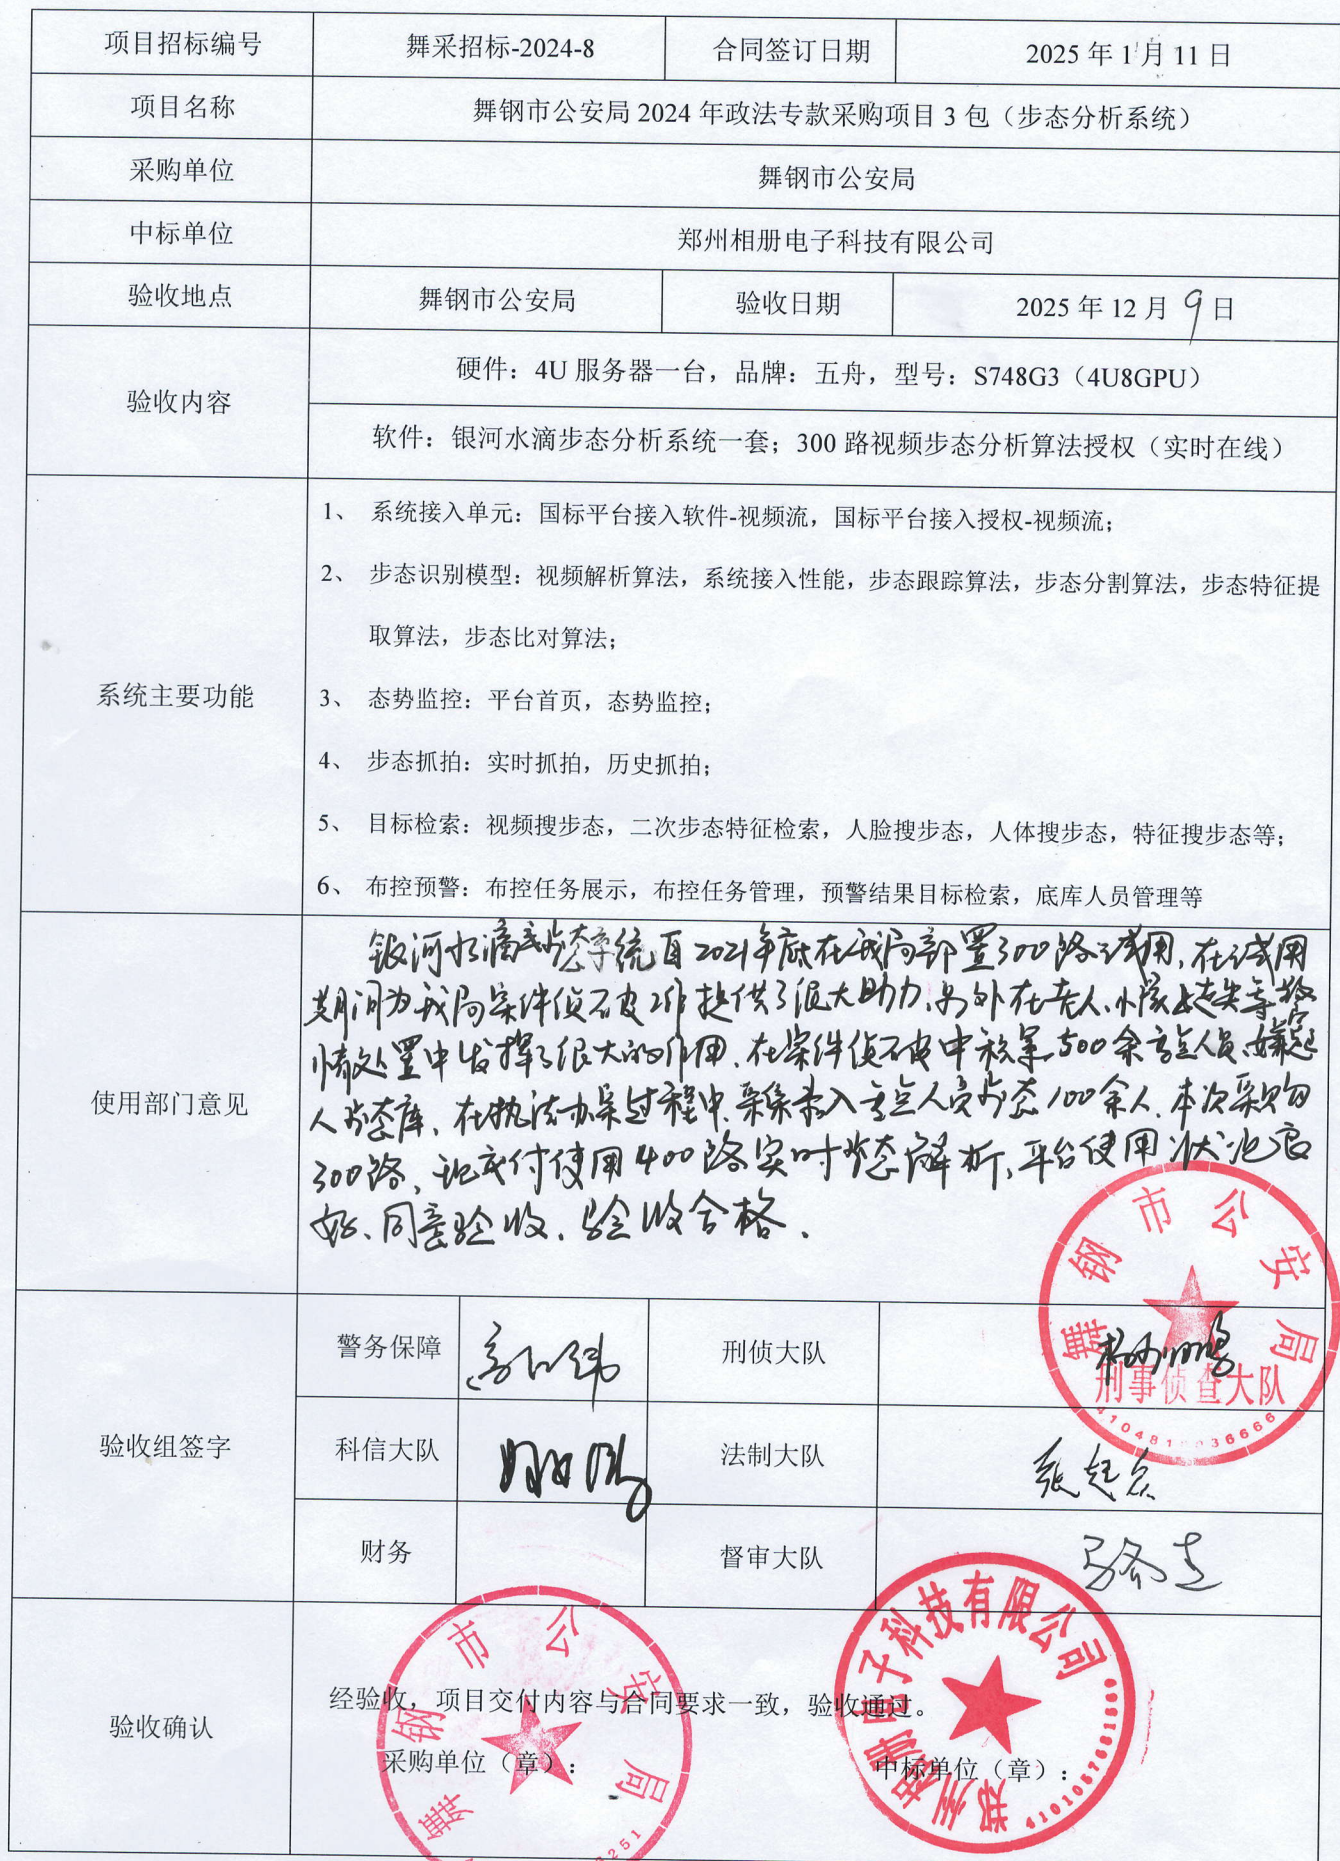 项目招标编号 舞采招标-2024-8 合同签订日期 2025 年 1 月 11 日
项目名称 舞钢市公安局 2024 年政法专款采购项目 3 包（步态分析系统）
采购单位 舞钢市公安局
中标单位 郑州相册电子科技有限公司
验收地点 舞钢市公安局 验收日期 2025 年 12 月 9 日
验收内容
硬件：4U 服务器一台，品牌：五舟，型号：S748G3（4U8GPU）
软件：银河水滴步态分析系统一套；300 路视频步态分析算法授权（实时在线）
系统主要功能
1、 系统接入单元：国标平台接入软件-视频流，国标平台接入授权-视频流；
2、 步态识别模型：视频解析算法，系统接入性能，步态跟踪算法，步态分割算法，步态特征提
取算法，步态比对算法；
3、 态势监控：平台首页，态势监控；
4、 步态抓拍：实时抓拍，历史抓拍；
5、 目标检索：视频搜步态，二次步态特征检索，人脸搜步态，人体搜步态，特征搜步态等；
6、 布控预警：布控任务展示，布控任务管理，预警结果目标检索，底库人员管理等
使用部门意见
银河水滴步态系统自2021年底在我局部署300路试用，在试用
期间为我局案件侦破工作提供了很大助力，另外在老人、小孩走失等警
情处置中发挥了很大的作用，在案件侦破中积累500余重点人员、嫌疑
人步态库，在执法办案过程中，采集录入重点人员步态100余人，本次采购
300路，现交付使用400路实时步态解析，平台使用状况良
好，同意验收，验收合格。
验收组签字
警务保障 刑侦大队
科信大队 法制大队
财务 督审大队
验收确认
经验收，项目交付内容与合同要求一致，验收通过。
采购单位（章）： 中标单位（章）：
舞钢市公安局
刑事侦查大队
舞钢市公安局
郑州相册电子科技有限公司